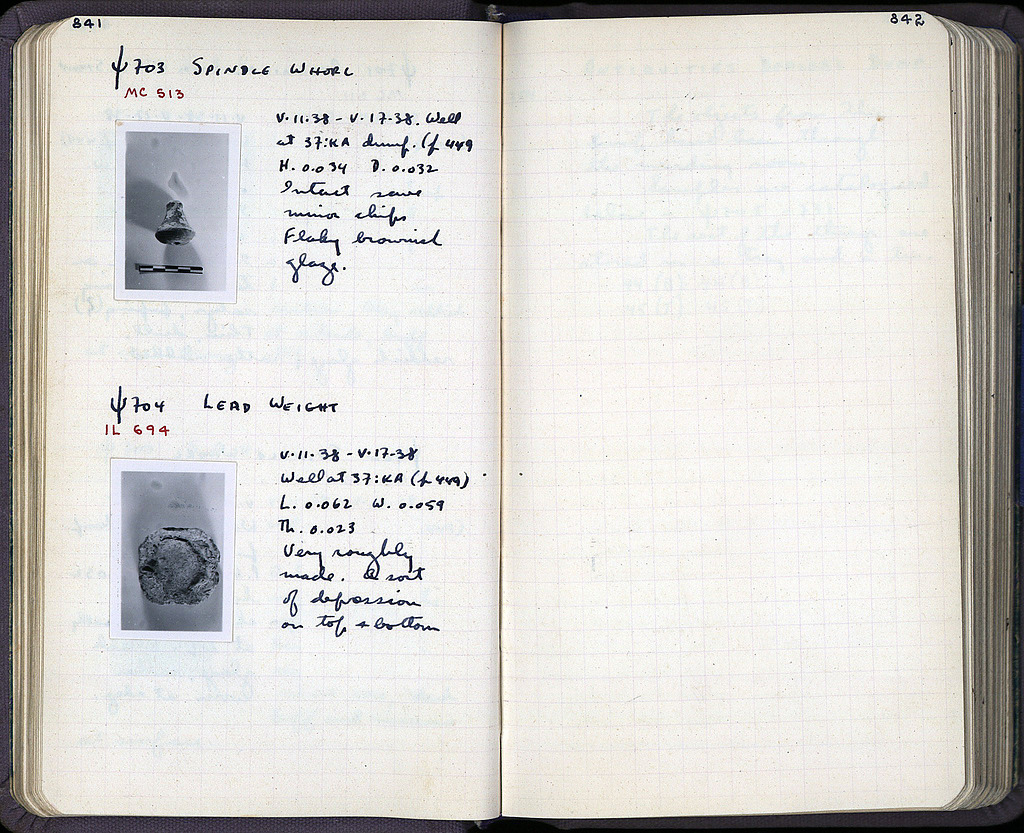 841
ψ703 SPINDLE WHORL
MC 513
V·11·38 - V·17·38. Well
at 37:KA dump. (p 449
H. 0.034 D. 0.032
Intact save
minor chips
Flaky brownish
glaze.
ψ704 LEAD WEIGHT
IL 694
V·11·38 - V·17·38
Well at 37:KA (p 449)
L. 0.062 W. 0.059
Th. 0.023
Very roughly
made. A sort
of depression
on top + bottom
842